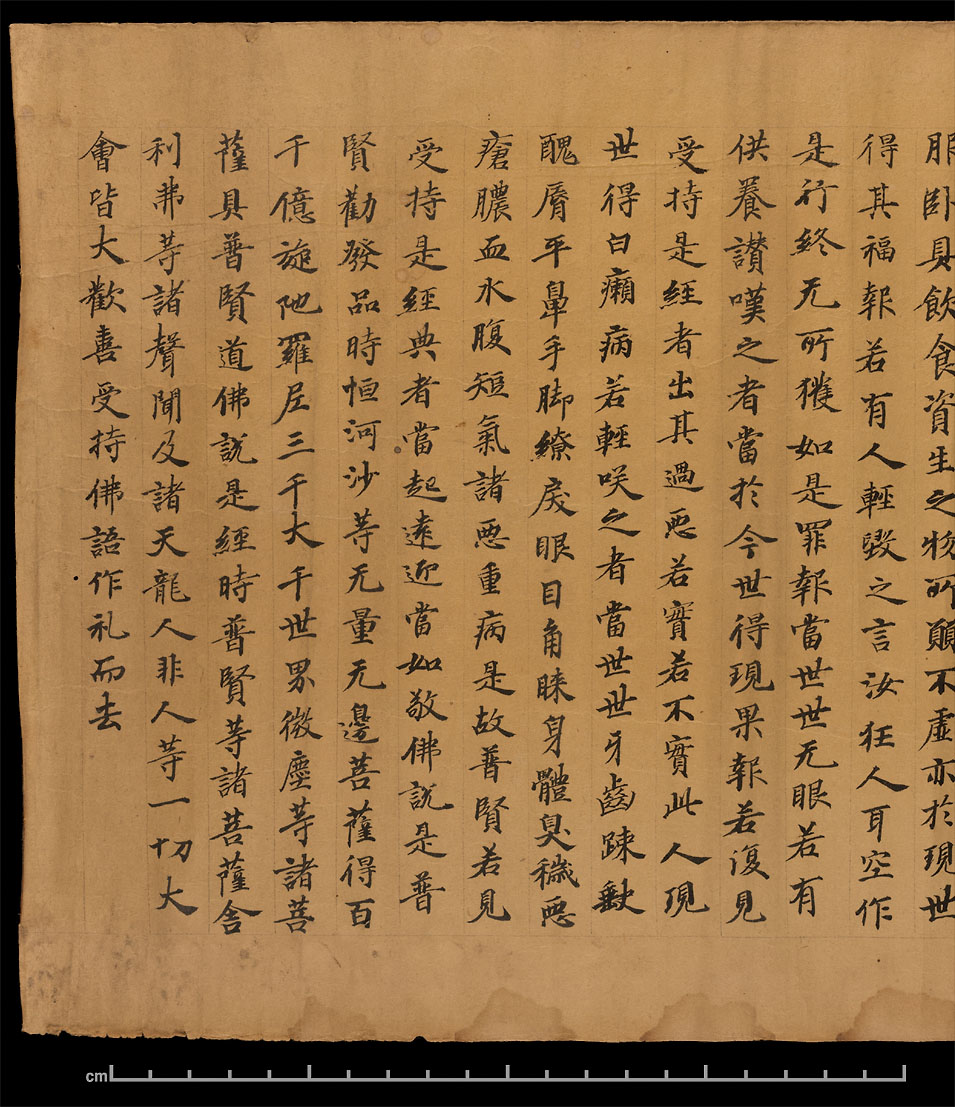 服卧具飲食資生之物所願不虛亦於現世
得其福報若有人輕毀之言汝狂人耳空作
是行終无所獲如是罪報當世世无眼若有
供養讃嘆之者當於今世得現果報若復見
受持是經者出其過惡若實若不實此人現
世得白癩病若輕咲之者當世世牙齒踈缺
醜脣平鼻手脚繚戾眼目角睞身體臭穢惡
瘡膿血水腹短氣諸惡重病是故普賢若見
受持是經典者當起遠近當如敬佛說是普
賢勸發品時恒河沙等无量无邊菩薩得百
千億旋陁羅尼三千大千世界微塵等諸菩
薩具普賢道佛說是經時普賢等諸菩薩舎
利弗等諸聲聞及諸天龍人非人等一切大
會皆大歡喜受持佛語作礼而去
cm